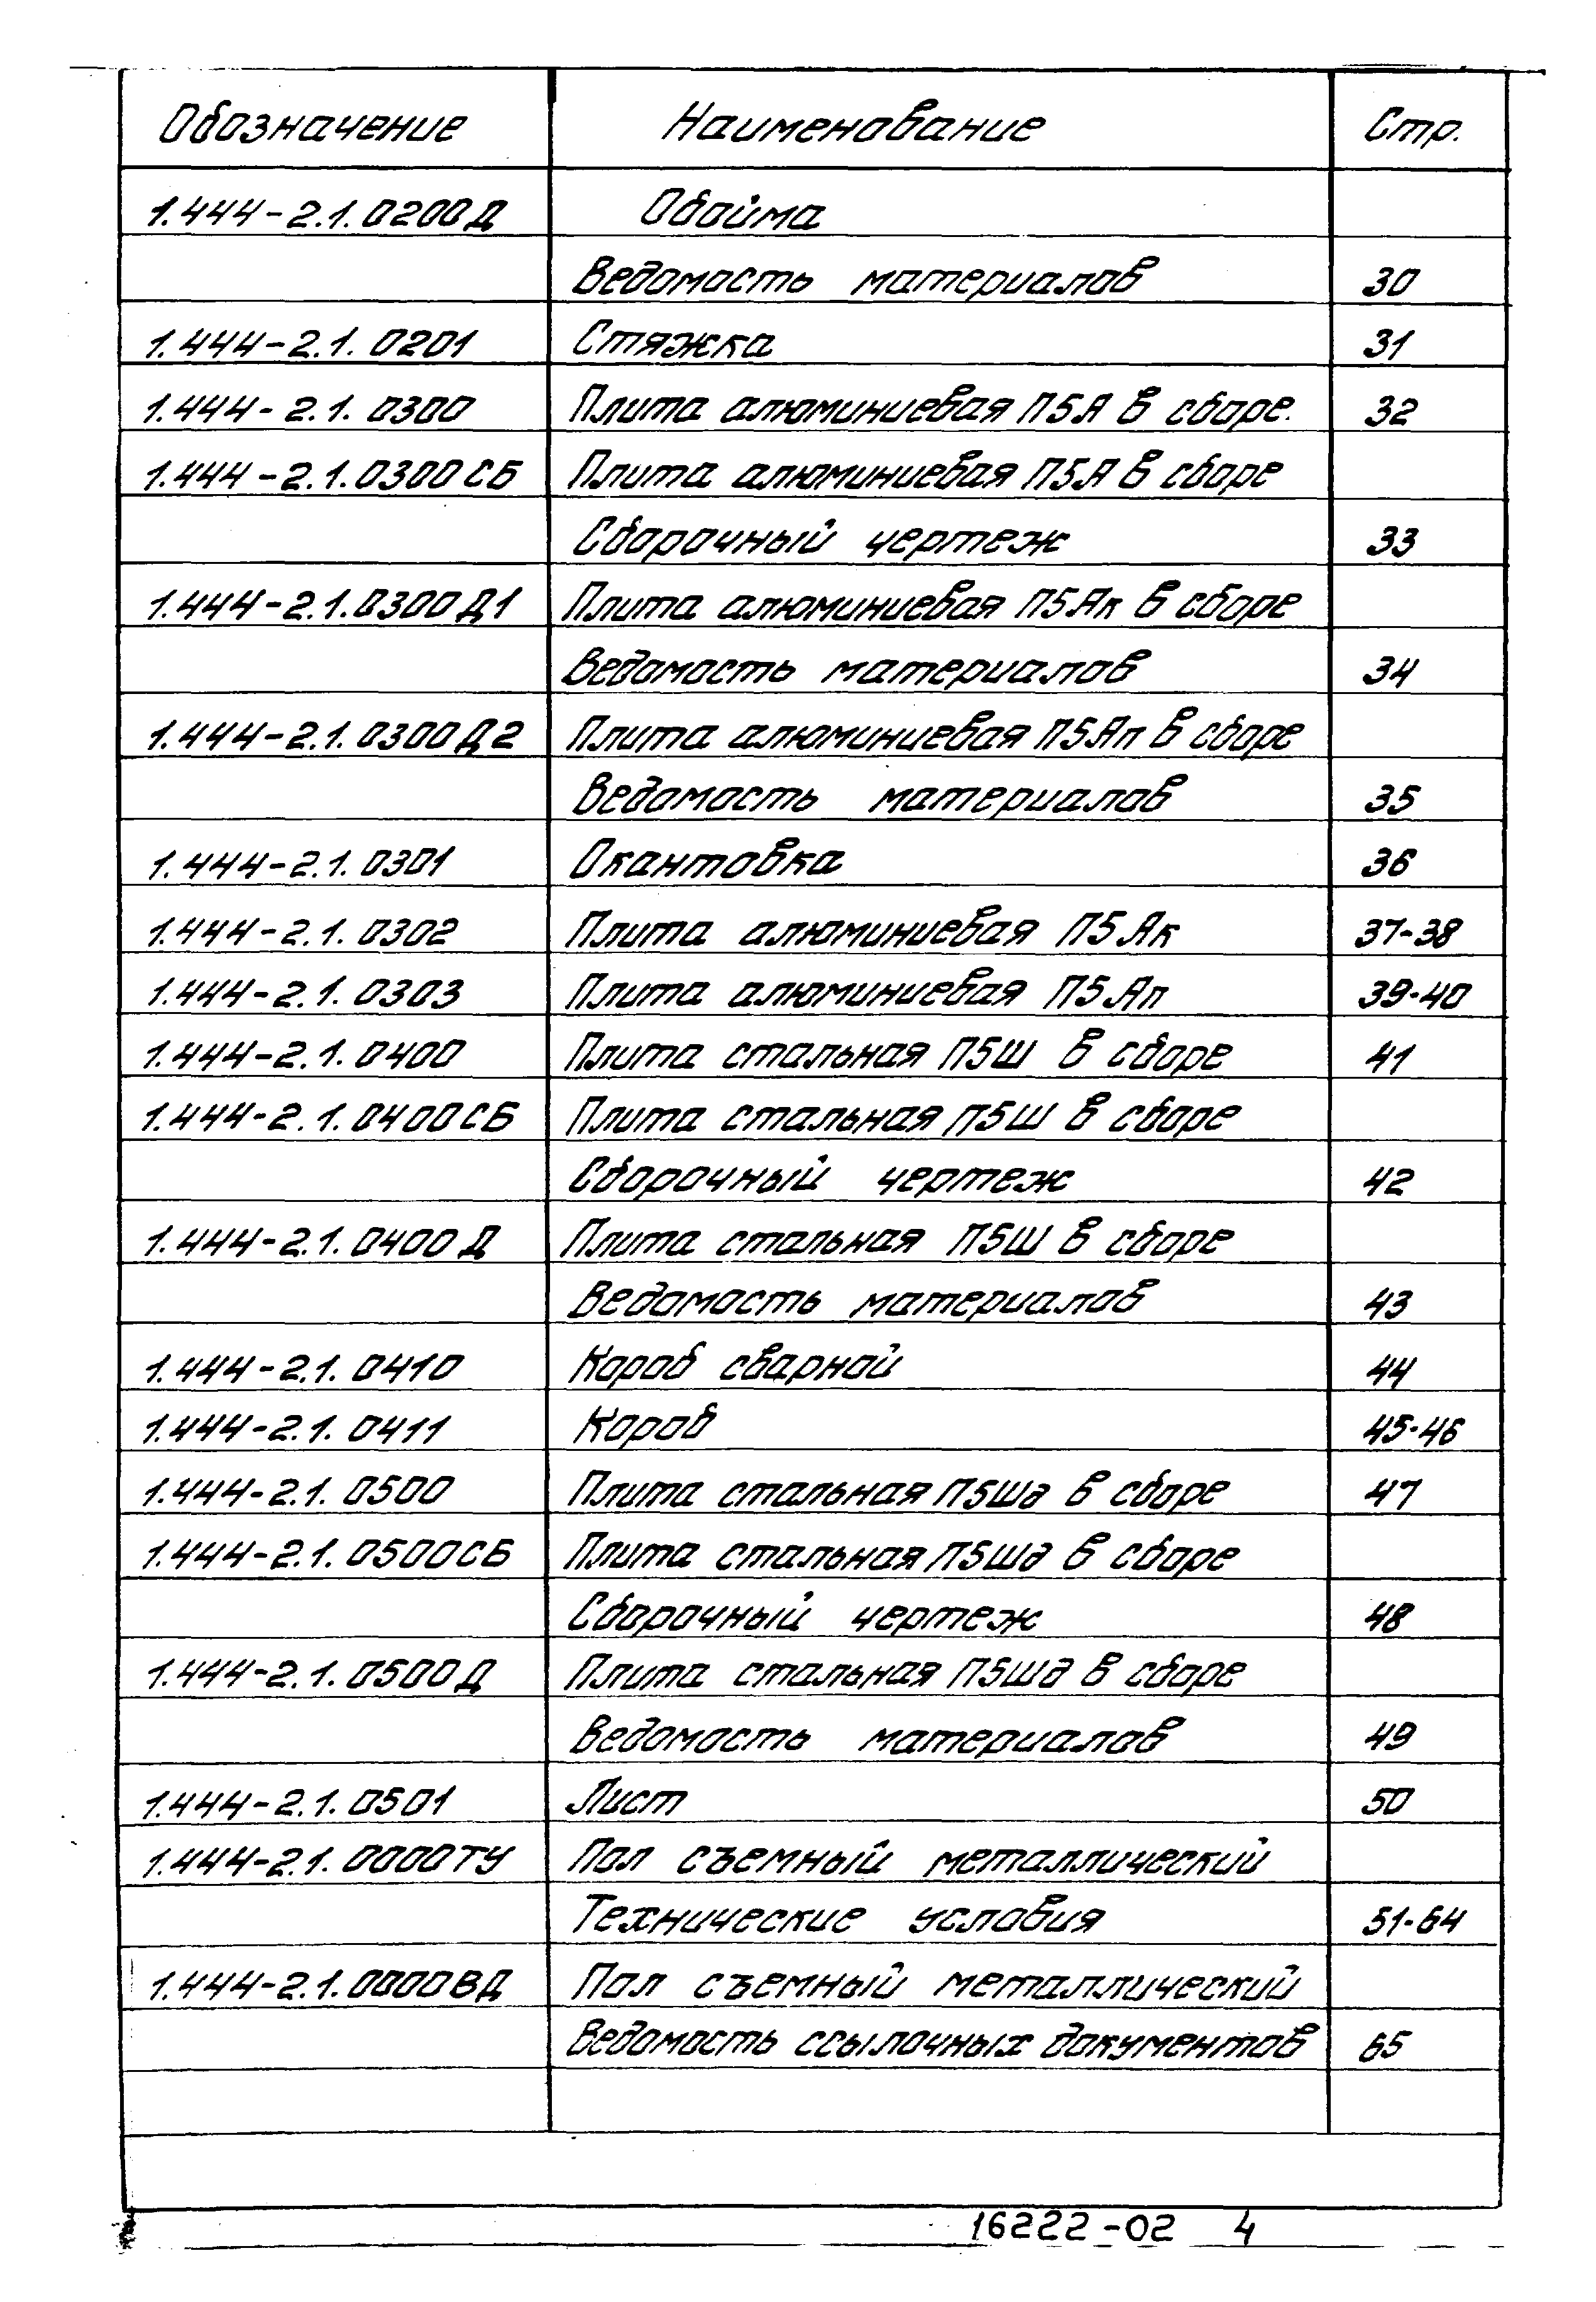 Обозначение Наименование Стр.
1.444-2.1.0200Д Обойма
Ведомость материалов 30
1.444-2.1.0201 Стяжка 31
1.444-2.1.0300 Плита алюминиевая П5А в сборе. 32
1.444-2.1.0300СБ Плита алюминиевая П5А в сборе
Сборочный чертеж 33
1.444-2.1.0300Д1 Плита алюминиевая П5Ак в сборе
Ведомость материалов 34
1.444-2.1.0300Д2 Плита алюминиевая П5Ап в сборе
Ведомость материалов 35
1.444-2.1.0301 Окантовка 36
1.444-2.1.0302 Плита алюминиевая П5Ак 37-38
1.444-2.1.0303 Плита алюминиевая П5Ап 39-40
1.444-2.1.0400 Плита стальная П5Ш в сборе 41
1.444-2.1.0400СБ Плита стальная П5Ш в сборе
Сборочный чертеж 42
1.444-2.1.0400Д Плита стальная П5Ш в сборе
Ведомость материалов 43
1.444-2.1.0410 Короб сварной 44
1.444-2.1.0411 Короб 45-46
1.444-2.1.0500 Плита стальная П5Шд в сборе 47
1.444-2.1.0500СБ Плита стальная П5Шд в сборе
Сборочный чертеж 48
1.444-2.1.0500Д Плита стальная П5Шд в сборе
Ведомость материалов 49
1.444-2.1.0501 Лист 50
1.444-2.1.0000ТУ Пол съемный металлический
Технические условия 51-64
1.444-2.1.0000ВД Пол съемный металлический
Ведомость ссылочных документов 65
16222-02 4